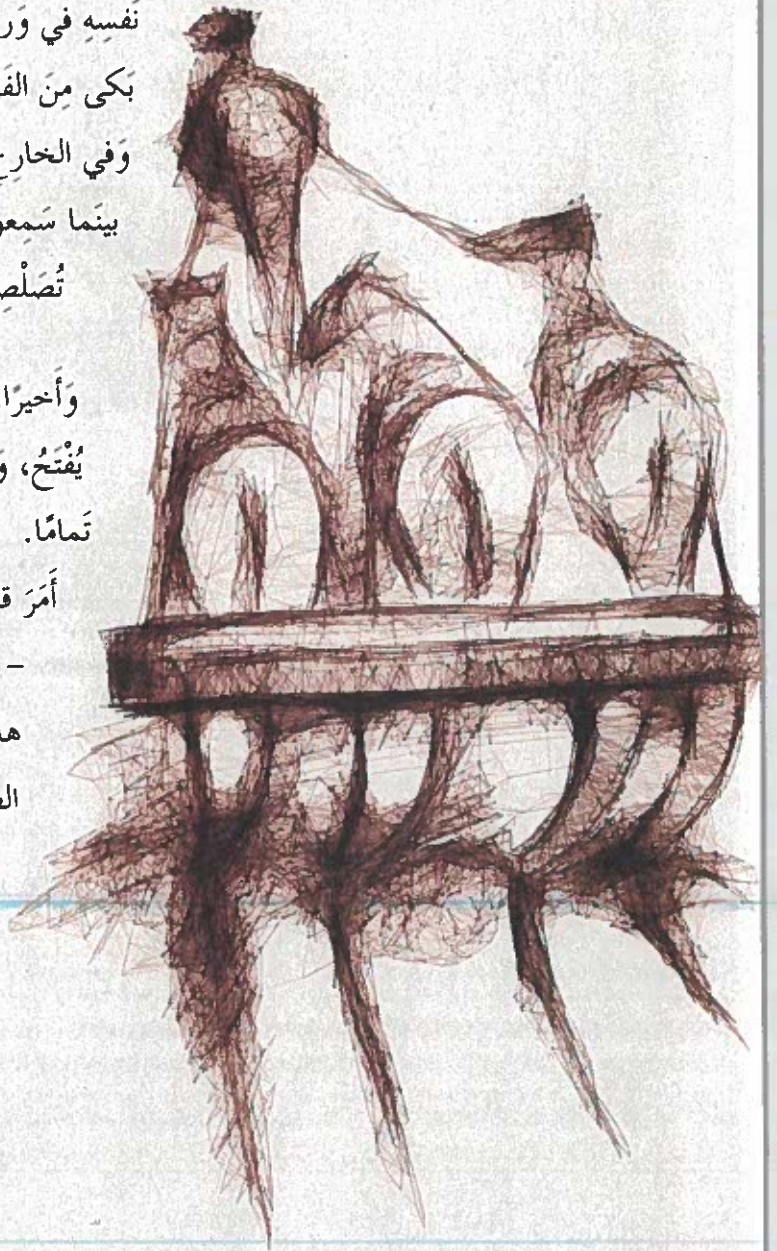 نَفسِهِ في وَر
بَكى مِنَ الفَ
وَفي الخارِجِ
بينَما سَمِعو
تُصَلْصِ
وَأَخيرًا
يُفْتَحُ، وَ
تَمامًا.
أَمَرَ ق
–